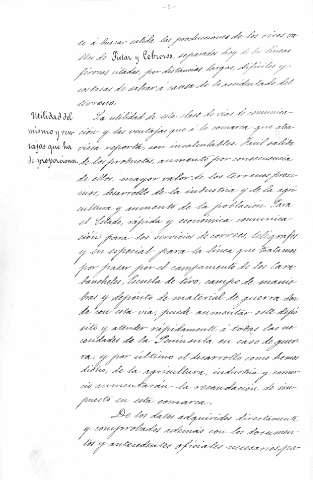 - 2 -
te á buscar salida las producciones de los ricos va-
lles de Tietar y Cebreros, separados hoy de las líneas
férreas citadas, por distancias largas, difíciles y
costosas de salvar á causa de lo accidentado del
terreno.
Utilidad del
mismo y ven-
tajas que ha
de proporcionar
La utilidad de esta clase de vias de comunica-
ción y las ventajas que á la comarca que atra-
viesa reporta, son incalculables. Facil salida
de los productos, aumento por consecuencia
de ellos, mayor valor de los terrenos próxi-
mos, desarrollo de la industria y de la agri-
cultura y aumento de la población. Para
el Estado, rápida y económica comunica-
ción para los servicios de correos, telégrafos
y en especial para la línea que tratamos
por pasar por el campamento de los Cara-
bancheles, Escuela de tiro, campo de manio-
bras y depósito de material de guerra don-
de con esta via, puede aumentar este depó-
sito y atender rápidamente á todas las ne-
cesidades de la Península en caso de gue-
rra, y por último el desarrollo como hemos
dicho, de la agricultura, industria y comer-
cio aumentarán la recaudación de im-
puestos en esta comarca.
De los datos adquiridos directamente
y comprobados además con los documen-
tos y antecedentes oficiales necesarios pa-